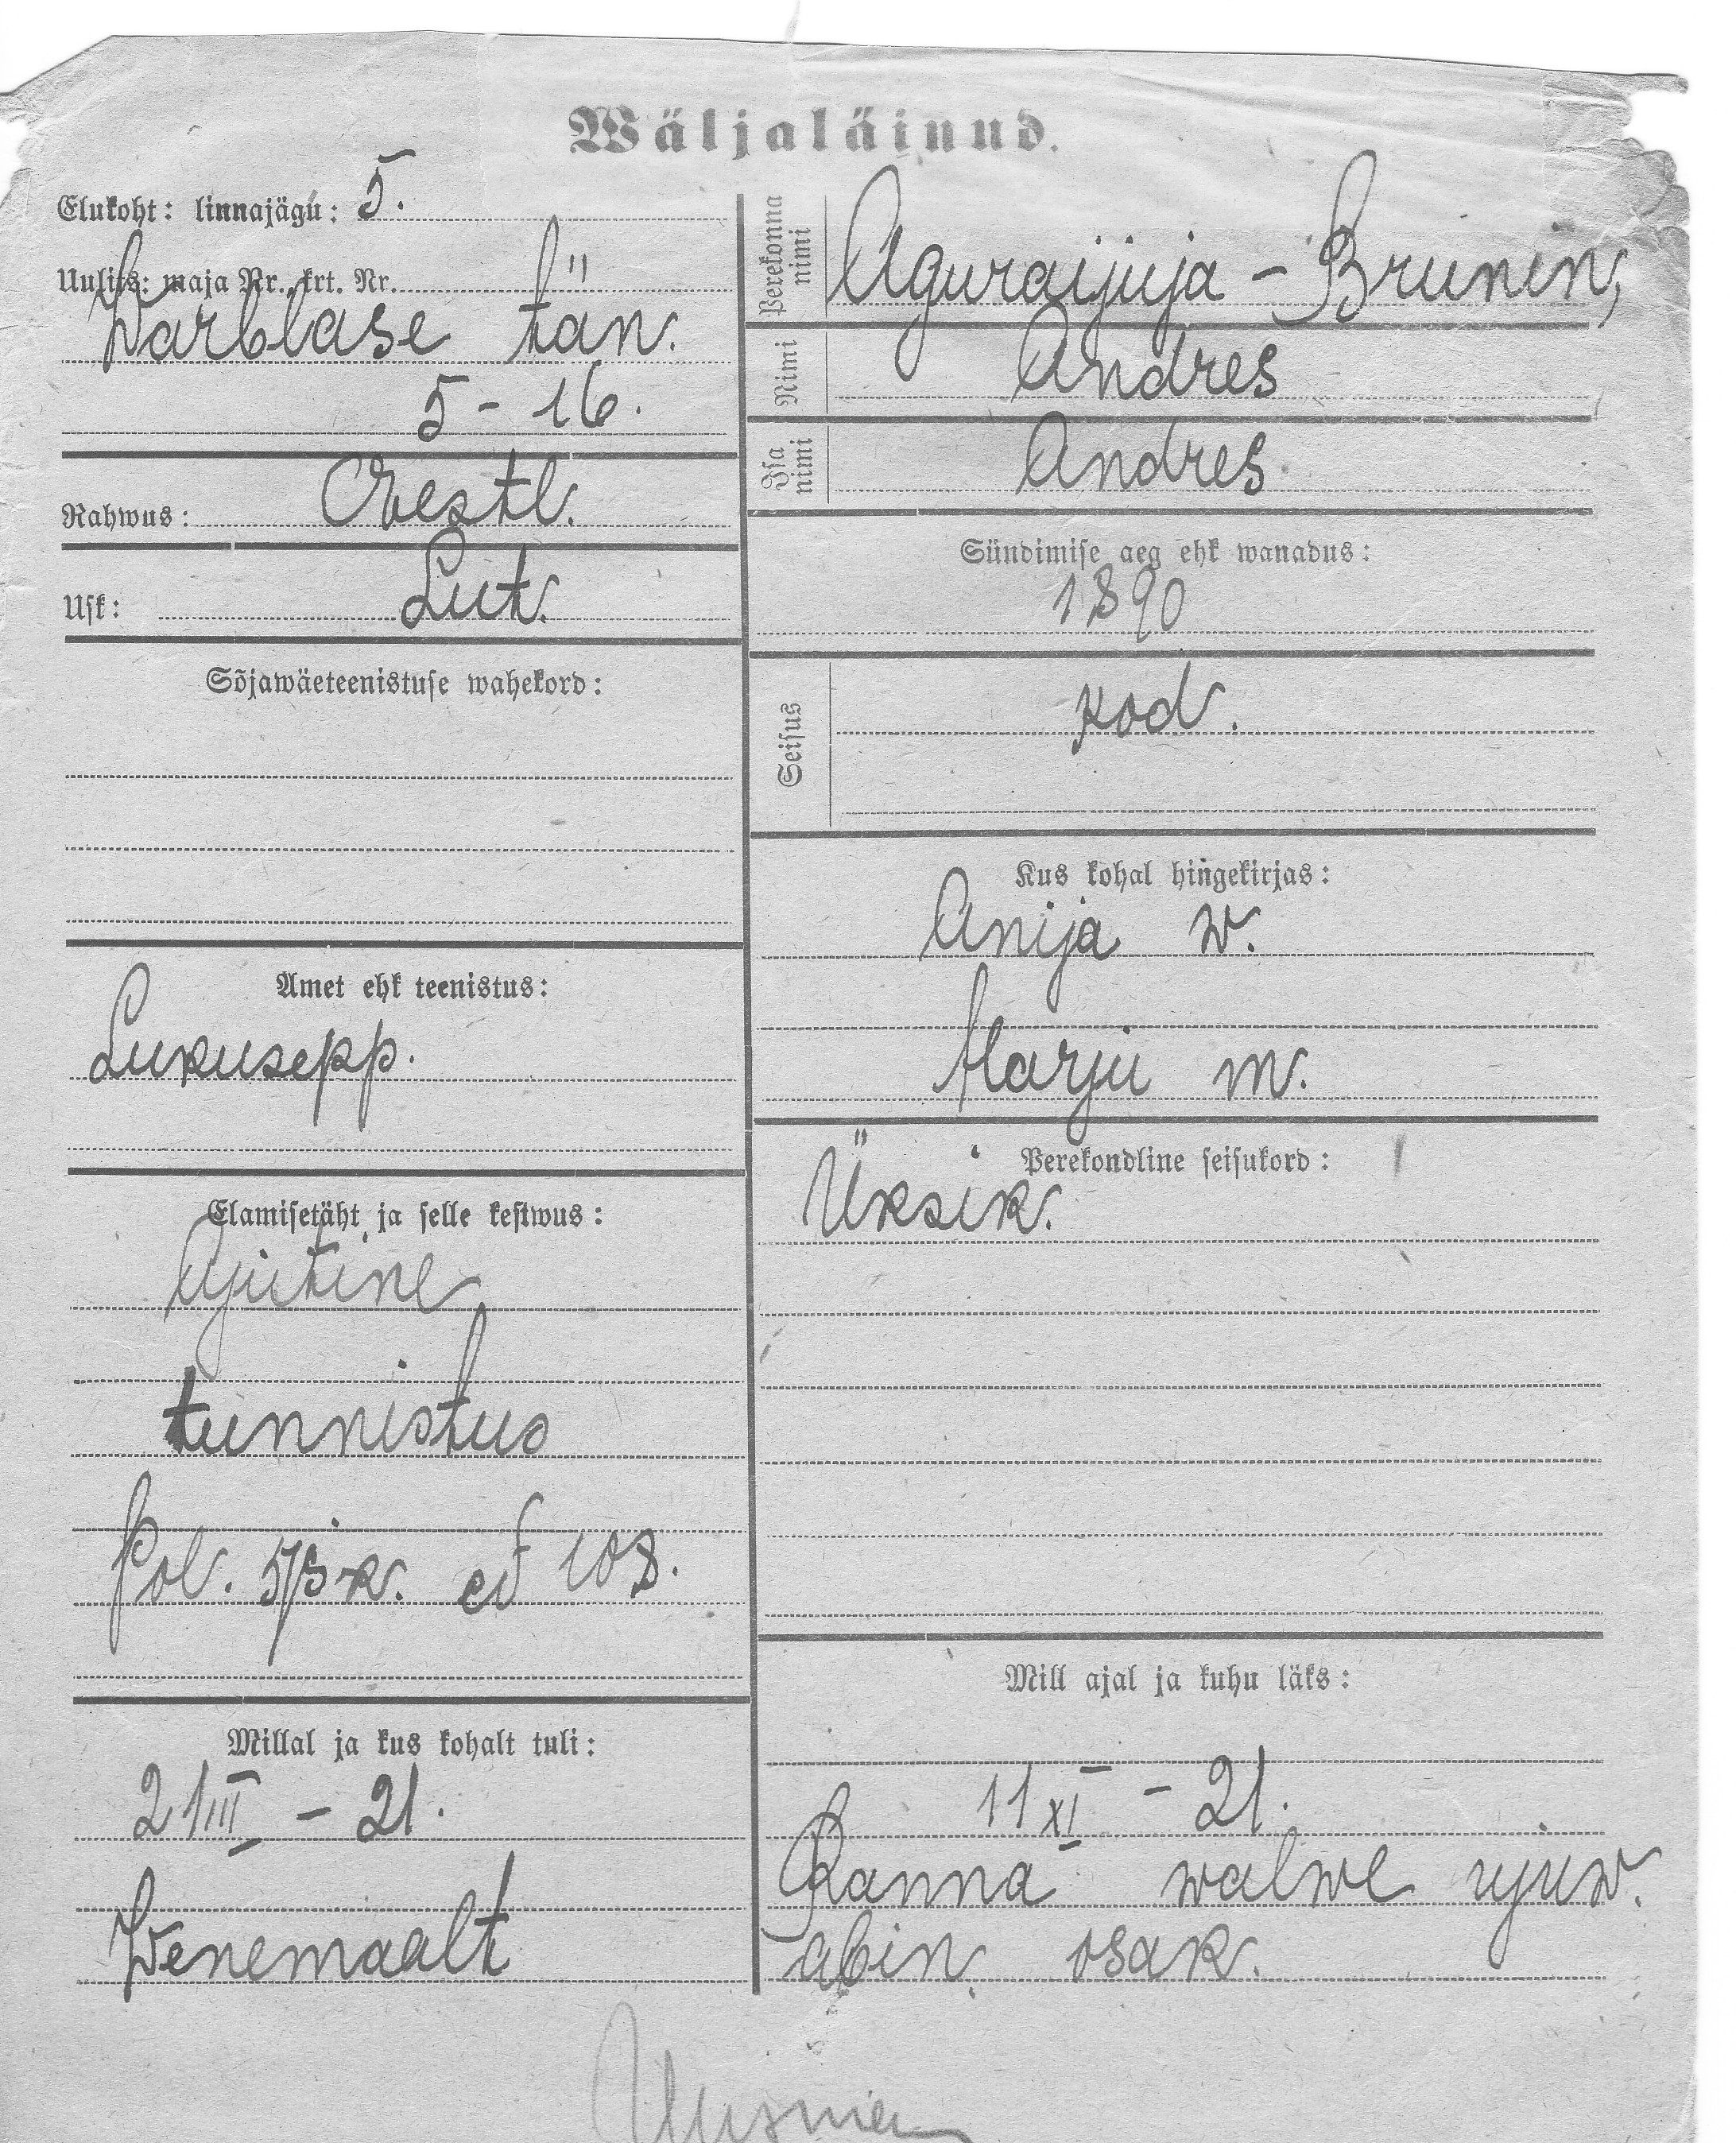 Wäljaläinud.
Elukoht: linnajägu: 5.
Uulits: maja Nr., krt. Nr.
Warblase tän.
5 - 16.
Rahwus: Eestl.
Usk: Lut.
Sõjawäeteenistuse wahekord:
Amet ehk teenistus:
Lukusepp.
Elamisetäht ja selle kestwus:
Ajutine
tunnistus
Pol. 5/3-k. № 108.
Millal ja kus kohalt tuli:
21 III - 21.
Wenemaalt
Perekonna nimi
Aguraijuja - Brunin,
Nimi Andres
Isa nimi Andres
Sündimise aeg ehk wanadus:
1890
Seisus kod.
Kus kohal hingekirjas:
Anija w.
Harju m.
Perekondline seisukord:
Üksik.
Mill ajal ja kuhu läks:
11 XI - 21.
Ranna walwe ujuw.
abin. osak.